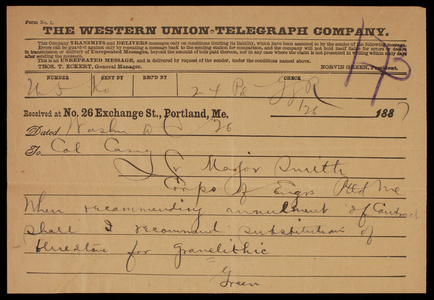 Form No. 1.
THE WESTERN UNION TELEGRAPH COMPANY.
This Company TRANSMITS and DELIVERS messages only on conditions limiting its liability, which have been assented to by the sender of the following message.
Errors can be guarded against only by repeating a message back to the sending station for comparison, and the company will not hold itself liable for errors or delays
in transmission or delivery of Unrepeated Messages, beyond the amount of tolls paid thereon, nor in any case where the claim is not presented in writing within sixty days
after sending the message.
This is an UNREPEATED MESSAGE, and is delivered by request of the sender, under the conditions named above.
THOS. T. ECKERT, General Manager. NORVIN GREEN, President.
NUMBER SENT BY REC'D BY CHECK
Received at No. 26 Exchange St., Portland, Me. 1887
Dated Washn D C 26
To Col Casey
or Major Smith
Corps of Engrs Ptld Me
When recommending annulment of
shall I recommend substitution of
bluestone for granolithic
Green